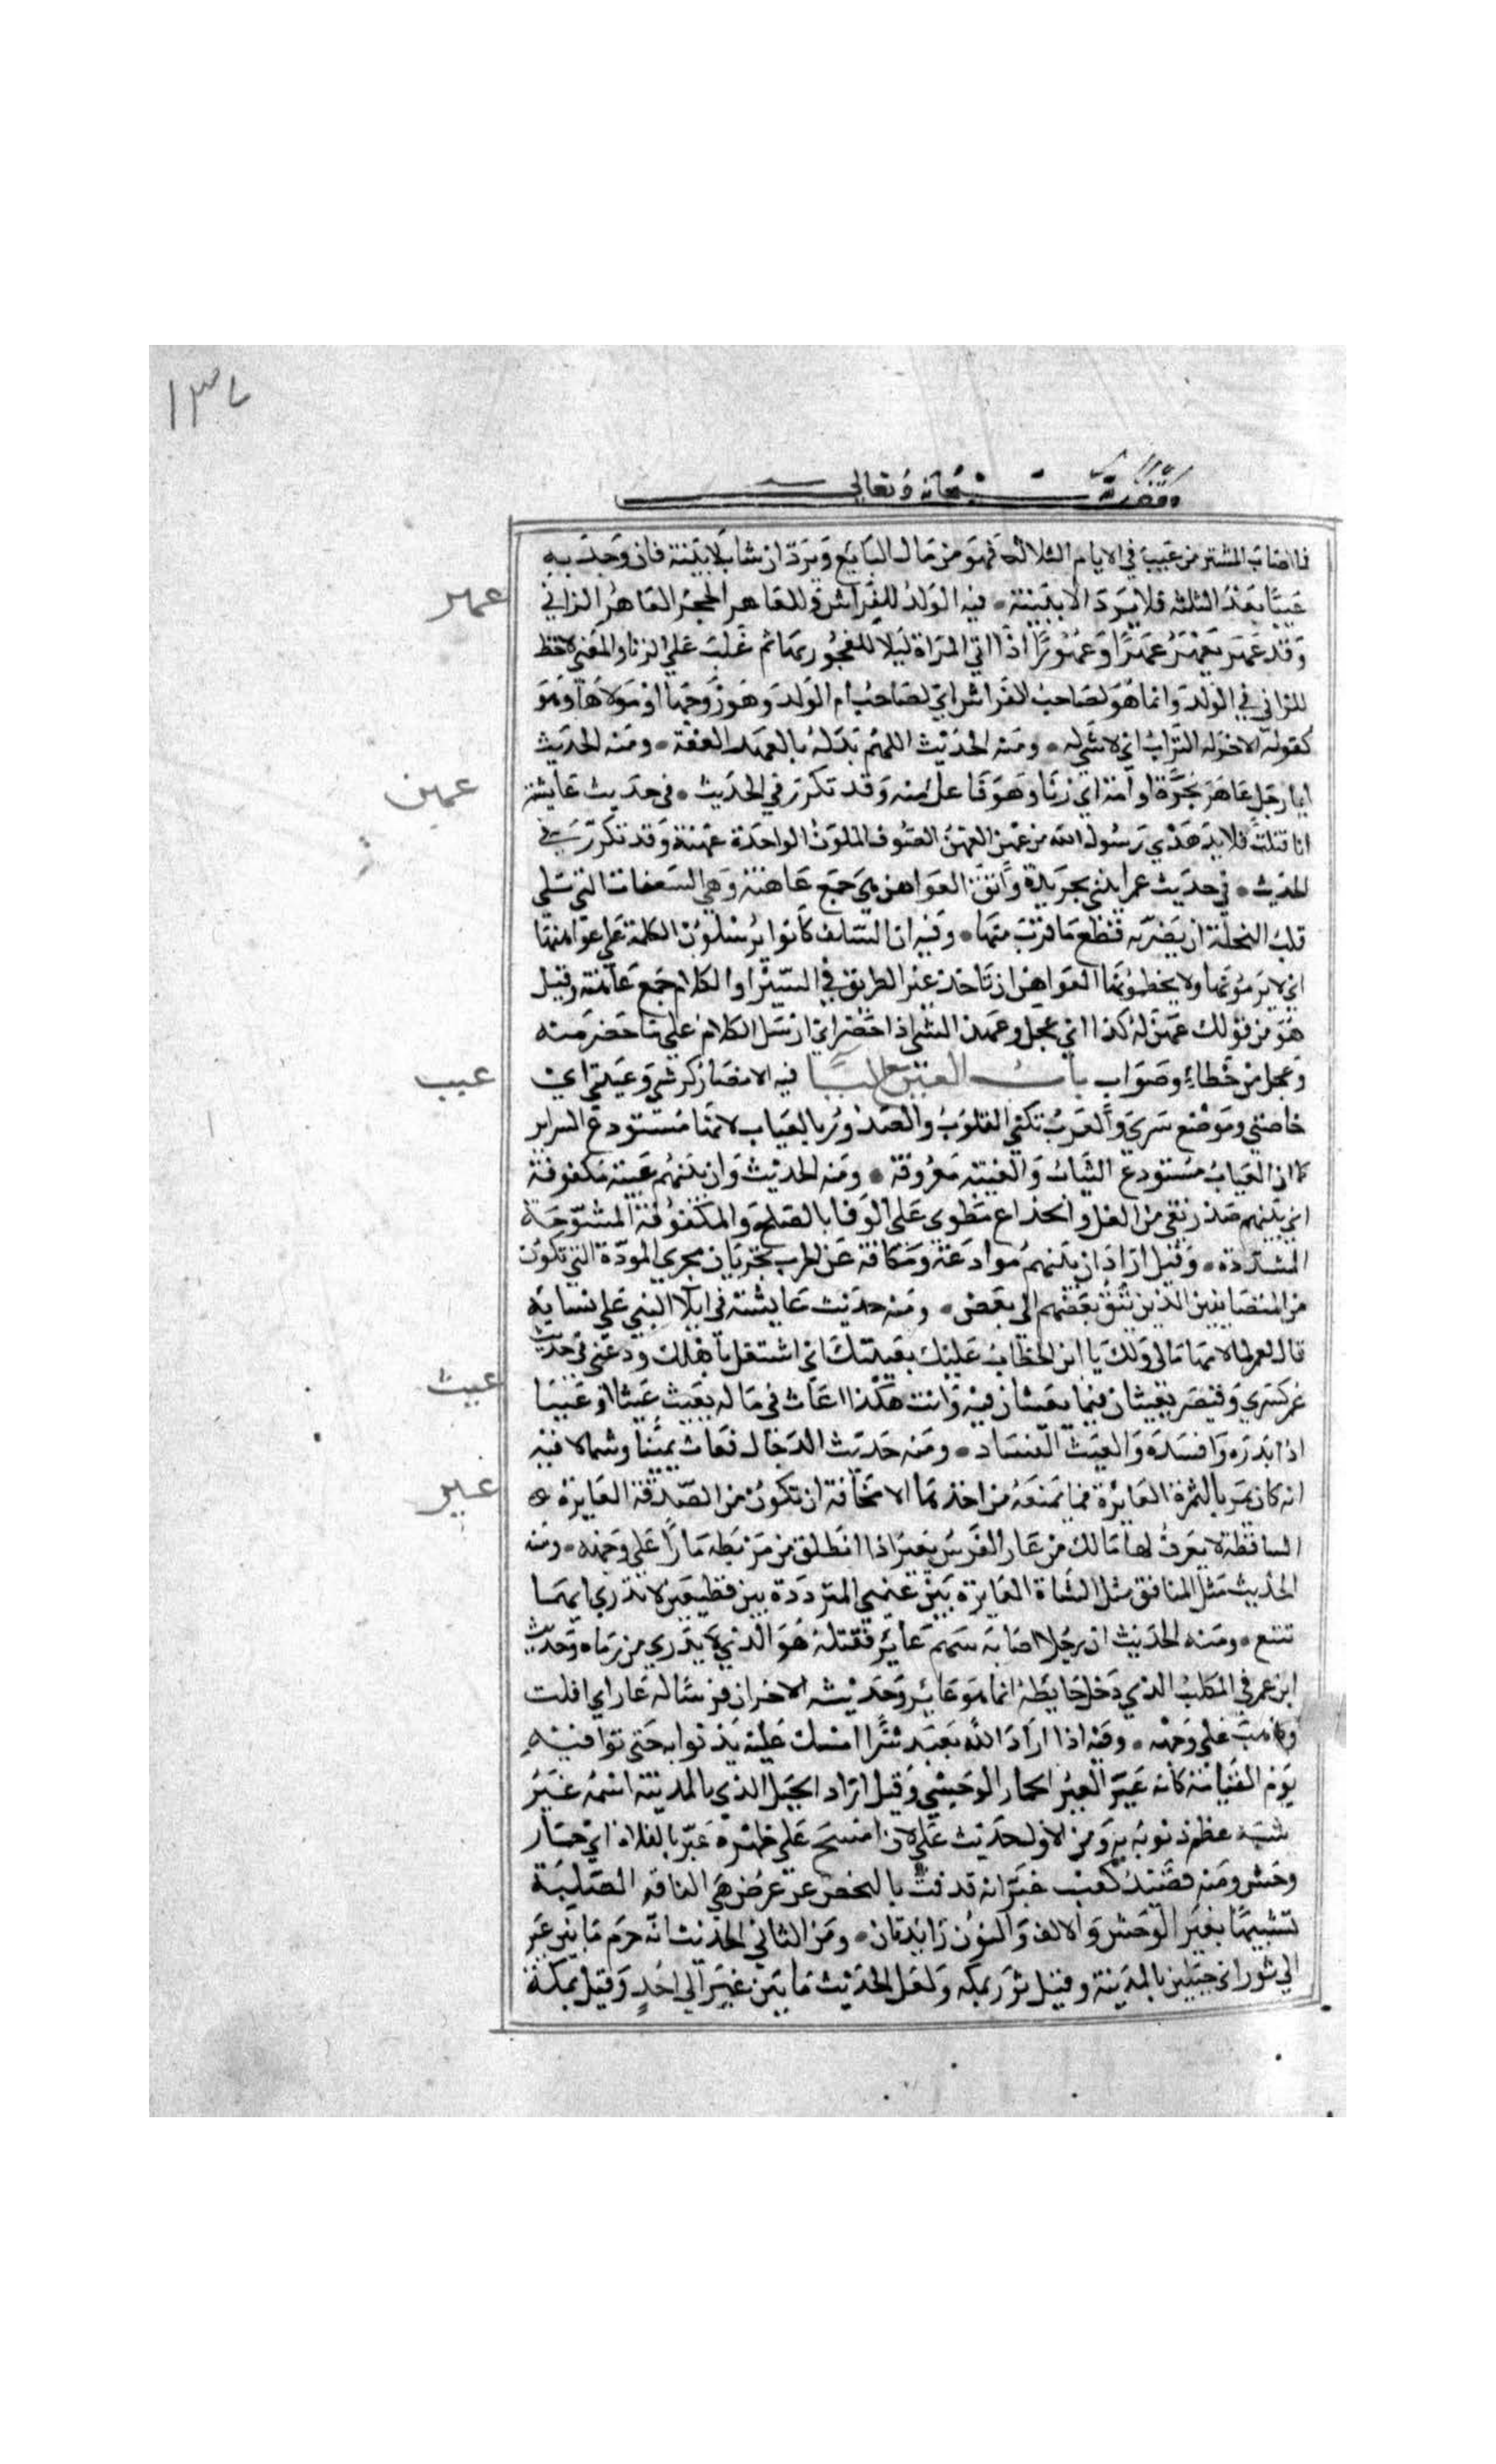 ١٣٧
وقف لله سبحانه وتعالى
فما اصاب المشتر من عيب في الايام الثلاثة فهو من مال البايع ويرد ان شا بلا بينة فان وجد به
عيبا بعد الثلثه فلا يرد الا ببينة • فيه الولد للفراش وللعاهر الحجر العاهر الزاني
عهر
وقد عهر يعهر عهرا وعهورا اذا اتى المراة ليلا للفجور بها ثم غلب على الزنا والمعنى لا حظ
للزاني في الولد وانما هو لصاحب الفراش اي لصاحب ام الولد وهو زوجها او مولاها وهو
كقوله الاخر له التراب اي لا شي له • ومنه الحديث اللهم بدله بالعهر العفة • ومنه الحديث
ايما رجل عاهر بحرة او امة اي زنا وهو فاعل منه وقد تكرر في الحديث • في حديث عايشة
عهن
انا فتلت قلايد هدي رسول الله من عهن العهن الصوف الملون الواحدة عهنة وقد تكرر في
الحديث • في حديث عمر ايتني بجريدة واتق العواهن هي جمع عاهنة وهي السعفات التي تلي
قلب النخلة ان يضر به قطع ما قرب منها • وفيه ان السلف كانوا يرسلون الكلمة على عواهنها
اي لا يزمونها ولا يخطمونها العواهن ان تاخذ غير الطريق في السير او الكلام جمع عاهنة وقيل
هو من قولك عهن له كذا اي عجل وعهن الشي اذا حضر اي ارسل الكلام على ما حضر منه
وعجل من خطاء وصواب باب العين مع اليا فيه الانصار كرشي وعيبتي اي
عيب
خاصتي وموضع سري والعرب تكني القلوب والصدور بالعياب لانها مستودع السراير
كما ان العياب مستودع الثياب والعيبة معروفة • ومنه الحديث وان بينهم عيبة مكفوفة
اي بينهم صدر نقي من الغل والخداع مطوى على الوفا بالصلح والمكفوفة المشرجة
المشدودة • وقيل اراد ان بينهم موادعة ومكافة عن الحرب تجريان مجرى المودة التي تكون
من المتصافيين الذين يثق بعضهم الى بعض • ومنه حديث عايشة في ايلا النبي على نسايه
قالت لعمر لما لامها مالي ولك يا ابن الخطاب عليك بعيبتك اي اشتغل باهلك ودعني في حديث
عمر كسرى وقيصر يعيثان فيما يعيثان فيه وانت هكذا عاث في ماله يعيث عيثا او عيبا
عيث
اذا بذره وافسده والعيث الفساد • ومنه حديث الدجال فعاث يمينا وشمالا فيه
انه كان يمر بالتمرة العايرة فما يمنعه من اخذها الا مخافة ان تكون من الصدقة العايرة
عير
الساقطة لا يعرف لها مالك من عار الفرس يعير اذا انطلق من مربطه مارا على وجهه • ومنه
الحديث مثل المنافق مثل الشاة العايرة بين غنمي المترددة بين قطيعين لا تدري ايهما
تتبع • ومنه الحديث ان رجلا اصابه سهم عاير فقتله هو الذي لا يدري من رماه وحديث
ابن عمر في الكلب الذي دخل حايطه انما هو عاير وحديثه الاخر ان فرسا له عار اي افلت
وذهب على وجهه • وفيه اذا اراد الله بعبد شرا امسك عليه بذنوبه حتى توافيه
يوم القيامة كانه عير العير الحمار الوحشي وقيل اراد الجبل الذي بالمدينة اسمه عير
شبه عظم ذنوبه به ومن الاول حديث علي لان امسح على ظهر عير بالفلاة اي حمار
وحش ومنه قصيد كعب عيرانة قذفت بالنحض عن عرض هي الناقة الصلبة
تشبيها بعير الوحش والالف والنون زايدتان • ومن الثاني الحديث انه حرم ما بين عير
الى ثور اي جبلين بالمدينة وقيل ثور بمكه ولعل الحديث ما بين عير الى احد وقيل بمكة